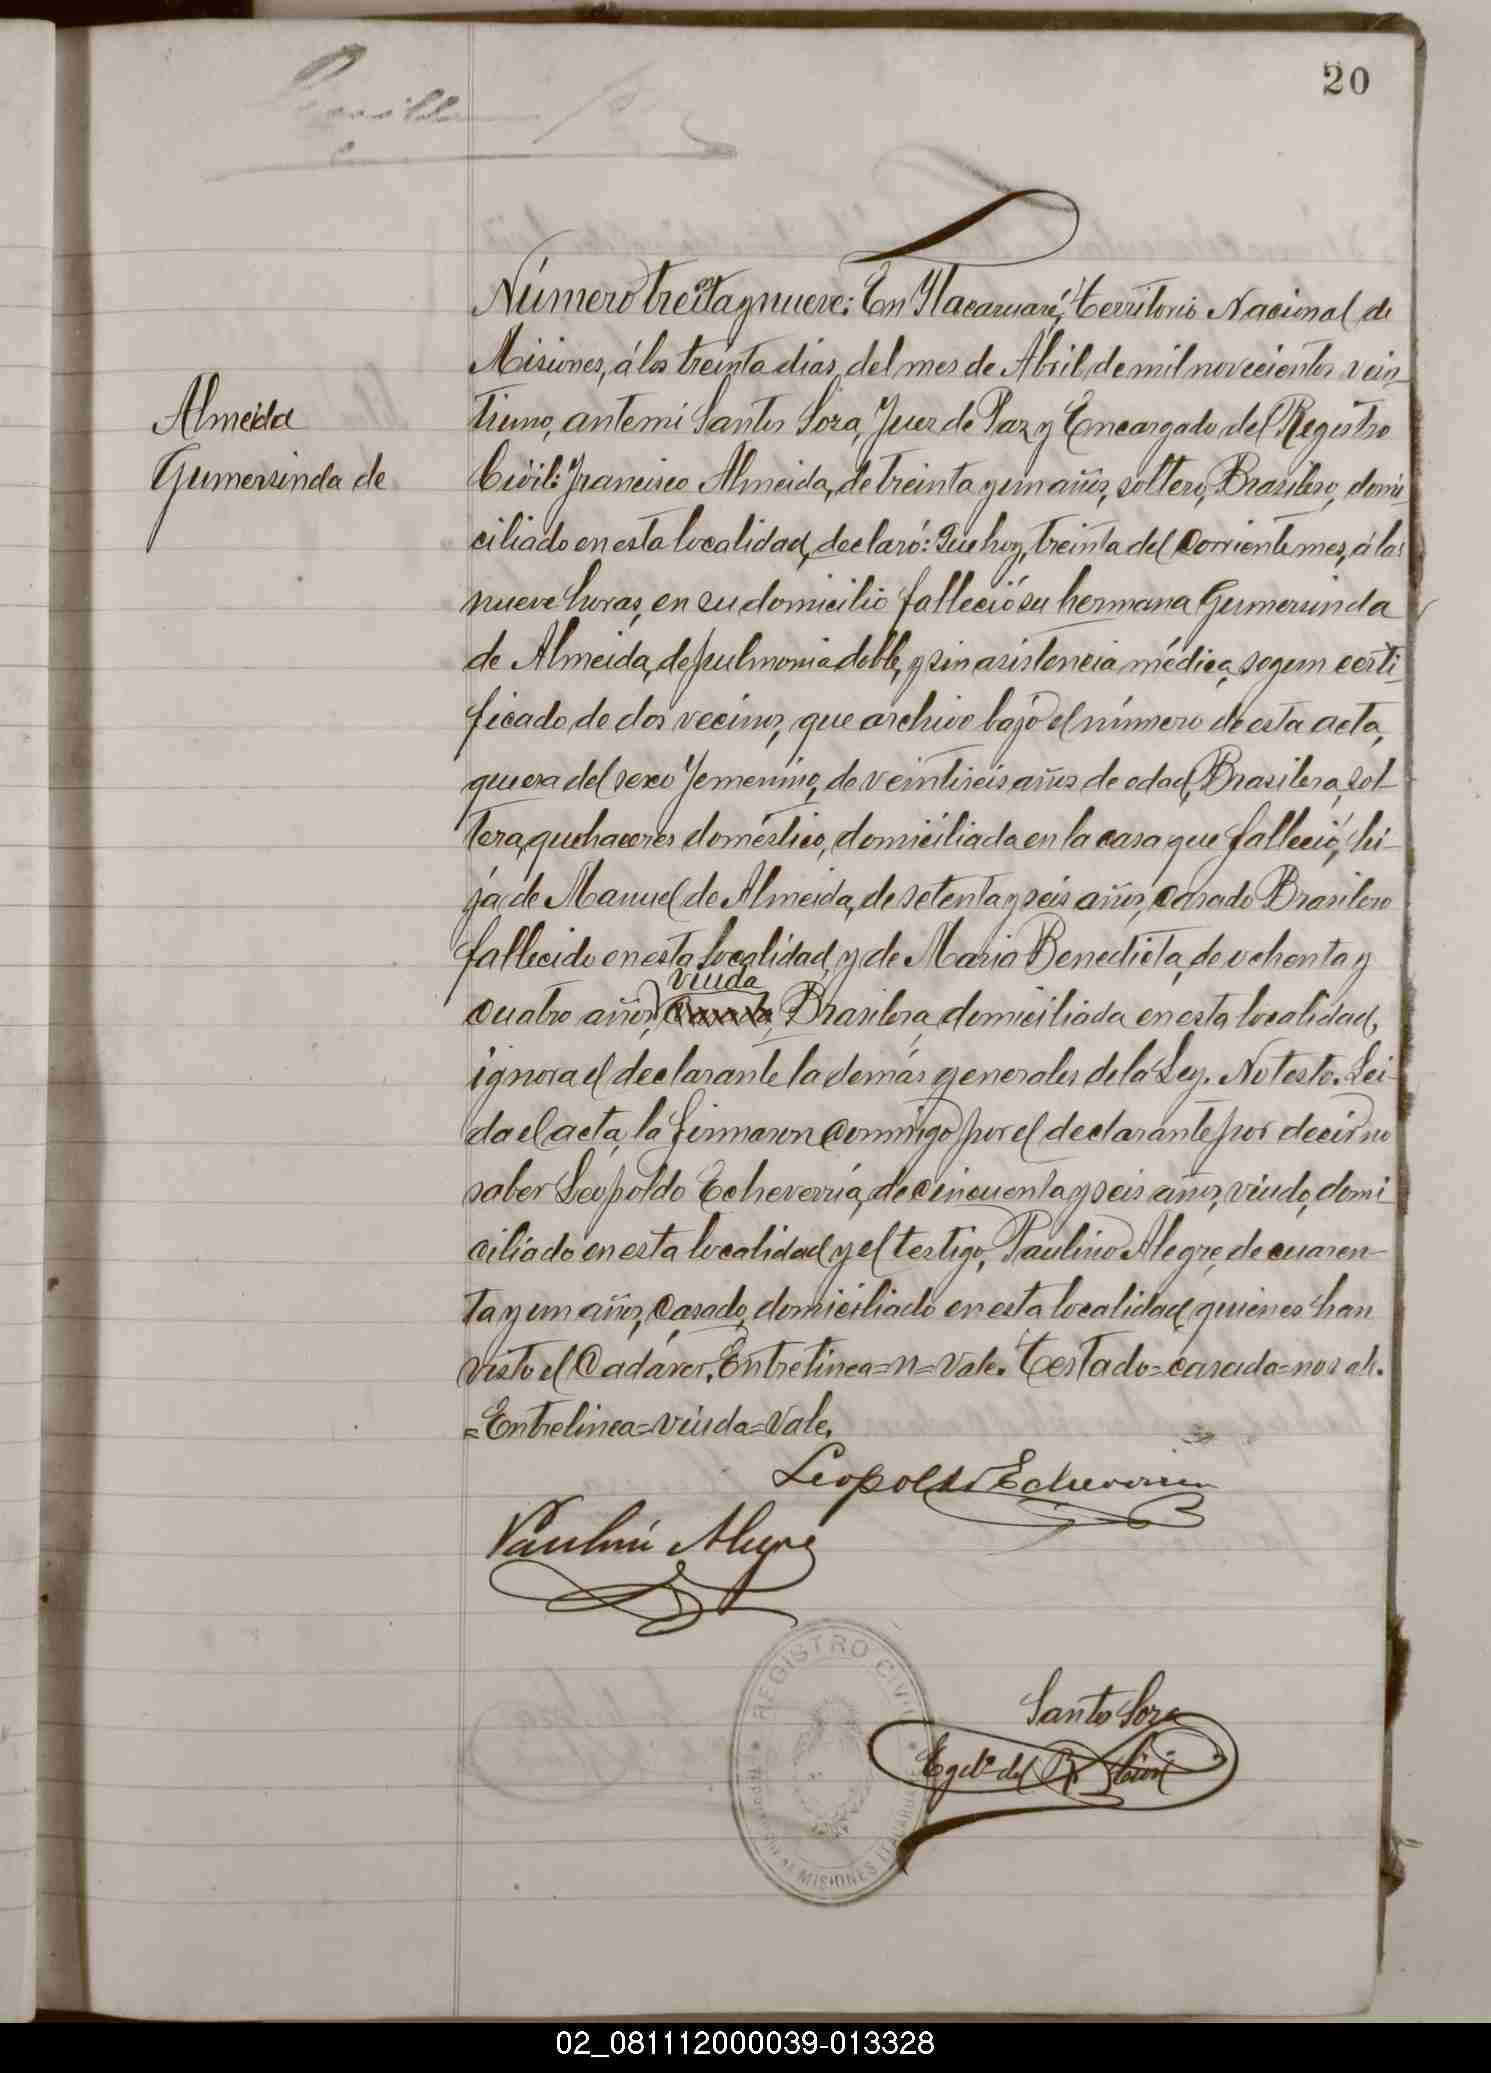 20
Número treintaynueve: En Itacaruaré, Territorio Nacional de
Misiones, á los treinta dias, del mes de Abril de mil novecientos vein-
Almeida
Gumersinda de
tiuno, ante mi Santos Loza, Juez de Paz y Encargado del Registro
Civil: Francisco Almeida, de treinta y un años, soltero, Brasilero, domi-
ciliado en esta localidad, declaró: Que hoy, treinta del corriente mes, á las
nueve horas, en su domicilio falleció su hermana Gumersinda
de Almeida, de pulmonia doble, y sin asistencia médica, segun certi-
ficado de dos vecinos, que archivo bajo el número de esta acta,
que era del sexo femenino, de veintiseis años de edad, Brasilera, sol-
tera, quehaceres doméstico, domiciliada en la casa que falleció, hi-
ja de Manuel de Almeida, de setenta y seis años, casado Brasilero
fallecido en esta localidad, y de Maria Benedicta, de ochenta y
viuda
cuatro años, casada, Brasilera, domiciliada en esta localidad,
ignora el declarante la demás generales de la Ley. No testo. Lei-
da el acta, la firmaron conmigo por el declarante por decir no
saber Leopoldo Echeverría, de cincuenta y seis años, viudo, domi
ciliado en esta localidad y el testigo, Paulino Alegre, de cuaren-
ta y un años, casado, domiciliado en esta localidad, quienes han
visto el Cadáver. Entrelinea=n=vale. Testado=casada=no vale.
=Entrelinea=viuda=Vale.
Leopoldo Echeverria
Paulino Alegre
REGISTRO CIVIL
MISIONES ITACARUARE
Santos Loza
Egdo. del R. Civil
02_081112000039-013328